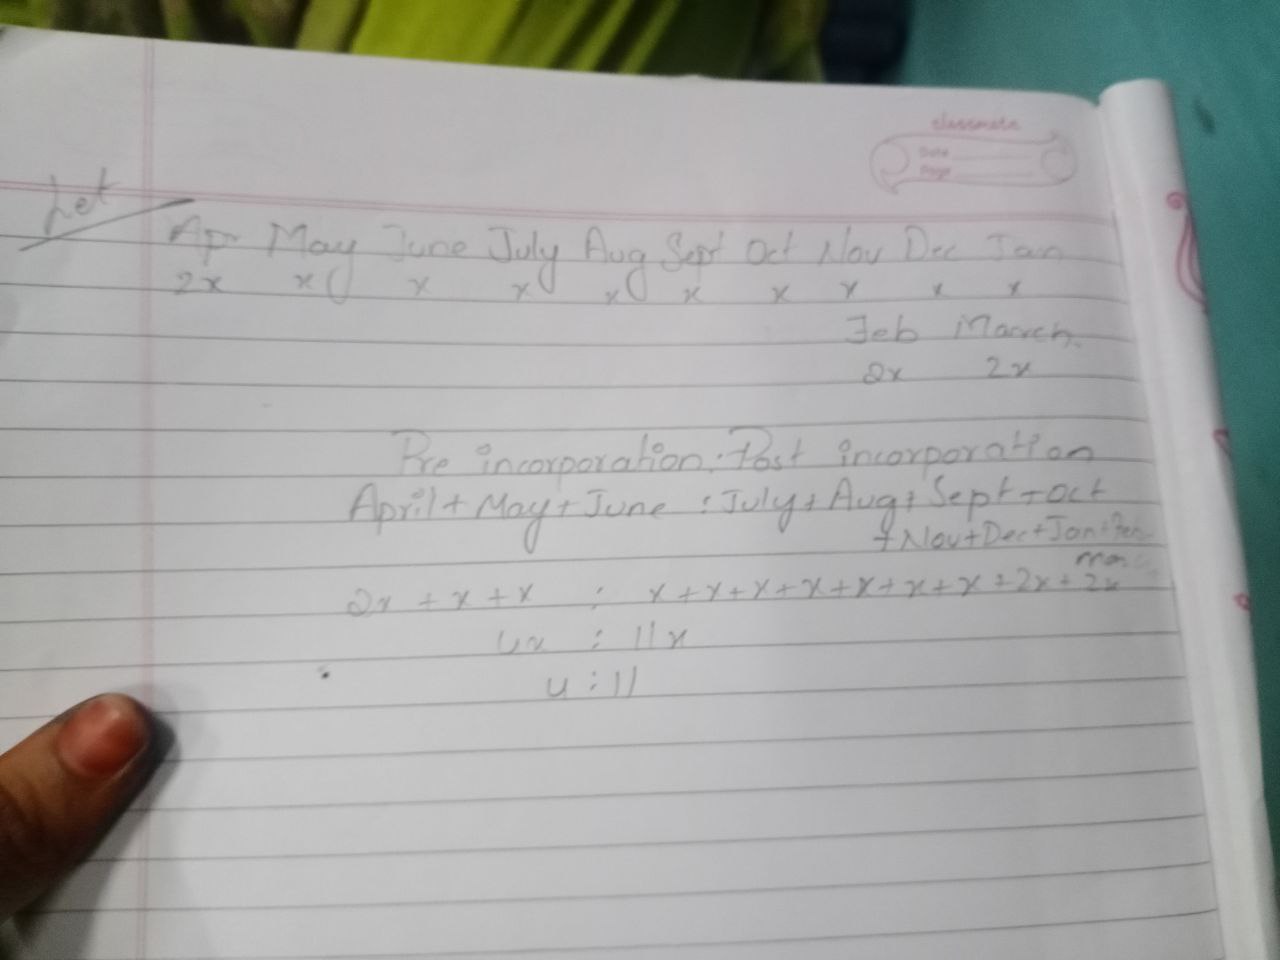 classmate
Date
Page
Let
Apr May June July Aug Sept Oct Nov Dec Jan
2x x x x x x x x x x
Feb March
2x 2x
Pre incorporation : Post incorporation
April + May + June : July + Aug + Sept + Oct
+ Nov + Dec + Jan + Feb
mar
2x + x + x : x + x + x + x + x + x + x + 2x + 2x
4x : 11x
4 : 11